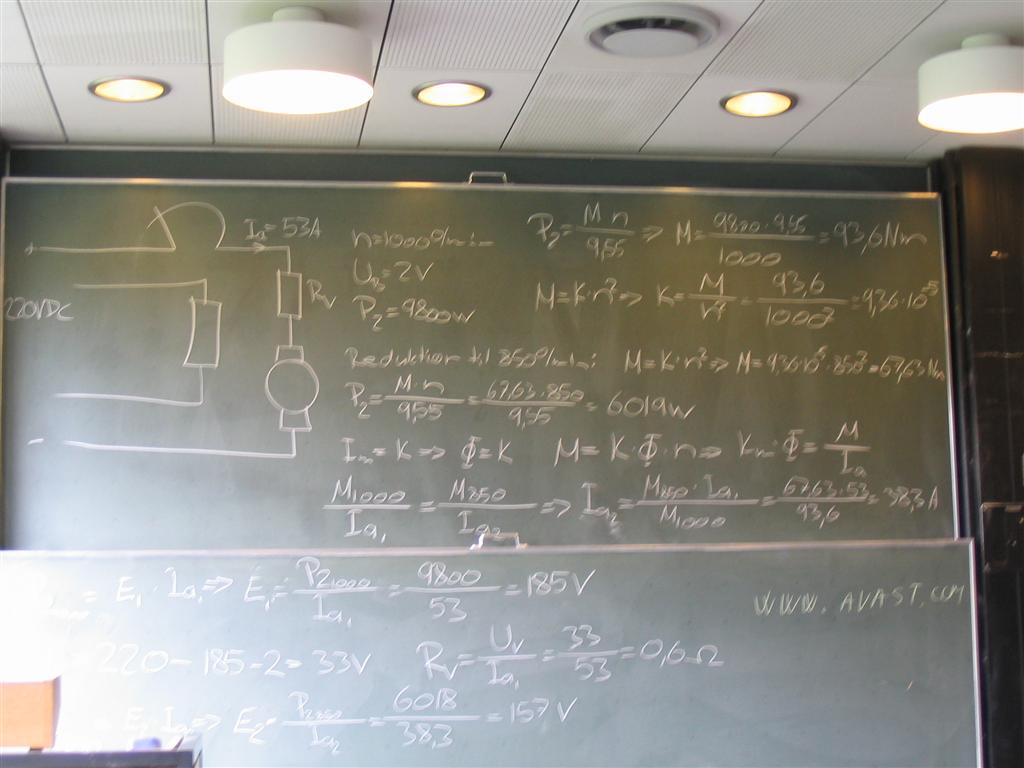 Iₐ = 53A
220VDC
Rᵥ
n=1000 º/min
U_B = 2V
P₂ = 9800w
P₂ = M n / 9,55 => M = 9820·9,55 / 1000 = 93,6Nm
M = K·n² => K = M / n² = 93,6 / 1000² = 9,36·10⁻⁵
Reduktion til 850 º/min: M = K·n² => M = 9,36·10⁻⁵·850² = 67,63Nm
P₂ = M·n / 9,55 = 67,63·850 / 9,55 = 6019w
Iₘ = K => Φ = K M = K·Φ·n => Kₘ·Φ = M / Iₐ
M1000 / Ia₁ = M850 / Ia₂ => Ia₂ = M850·Ia₁ / M1000 = 67,63·53 / 93,6 = 38,3A
= E₁·Ia₁ => E₁ = P₂1000 / Ia₁ = 9800 / 53 = 185V
WWW.AVAST.COM
220-185-2 = 33V Rᵥ = Uᵥ / Ia₁ = 33 / 53 = 0,6Ω
= E₁ Ia₂ => E₂ = P₂850 / Ia₂ = 6018 / 38,3 = 157V